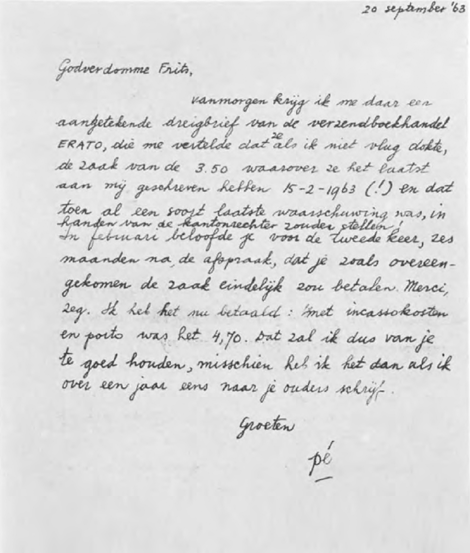 20 september '63
Godverdomme Frits,
vanmorgen krijg ik me daar een
aangetekende dreigbrief van de verzendboekhandel
ERATO, die me vertelde dat ze als ik niet vlug dokte,
de zaak van de 3.50 waarover ze het laatst
aan mij geschreven hebben 15-2-1963 (!) en dat
toen al een soort laatste waarschuwing was, in
handen van de kantonrechter zouden stellen!
In februari beloofde je voor de tweede keer, zes
maanden na de afspraak, dat je zoals overeen-
gekomen de zaak eindelijk zou betalen. Merci,
zeg. Ik heb het nu betaald: met incassokosten
en porto was het 4,70. Dat zal ik dus van je
te goed houden, misschien heb ik het dan als ik
over een jaar eens naar je ouders schrijf.
Groeten
pé